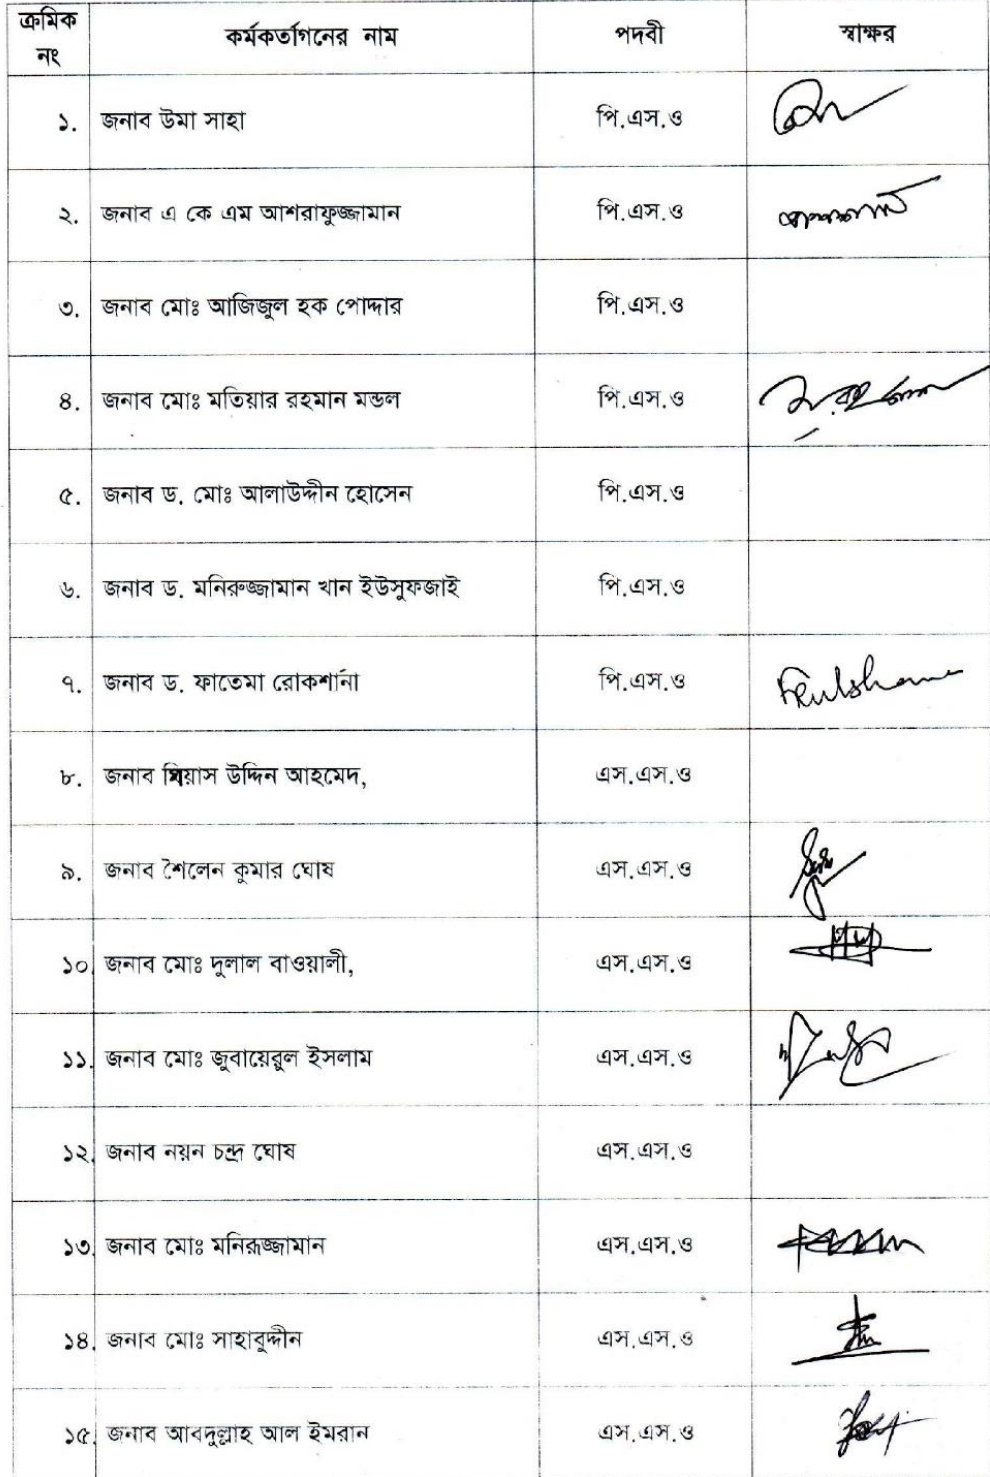 ক্রমিক নং কর্মকর্তাগনের নাম পদবী স্বাক্ষর
১. জনাব উমা সাহা পি.এস.ও
২. জনাব এ কে এম আশরাফুজ্জামান পি.এস.ও
৩. জনাব মোঃ আজিজুল হক পোদ্দার পি.এস.ও
৪. জনাব মোঃ মতিয়ার রহমান মন্ডল পি.এস.ও
৫. জনাব ড. মোঃ আলাউদ্দীন হোসেন পি.এস.ও
৬. জনাব ড. মনিরুজ্জামান খান ইউসুফজাই পি.এস.ও
৭. জনাব ড. ফাতেমা রোকশানা পি.এস.ও
৮. জনাব উদ্দিন আহমেদ, এস.এস.ও
৯. জনাব শৈলেন কুমার ঘোষ এস.এস.ও
১০ জনাব মোঃ দুলাল বাওয়ালী, এস.এস.ও
১১. জনাব মোঃ জুবায়েরুল ইসলাম এস.এস.ও
১২. জনাব নয়ন চন্দ্র ঘোষ এস.এস.ও
১৩. জনাব মোঃ মনিরূজ্জামান এস.এস.ও
১৪. জনাব মোঃ সাহাবুদ্দীন এস.এস.ও
১৫. জনাব আবদুল্লাহ আল ইমরান এস.এস.ও